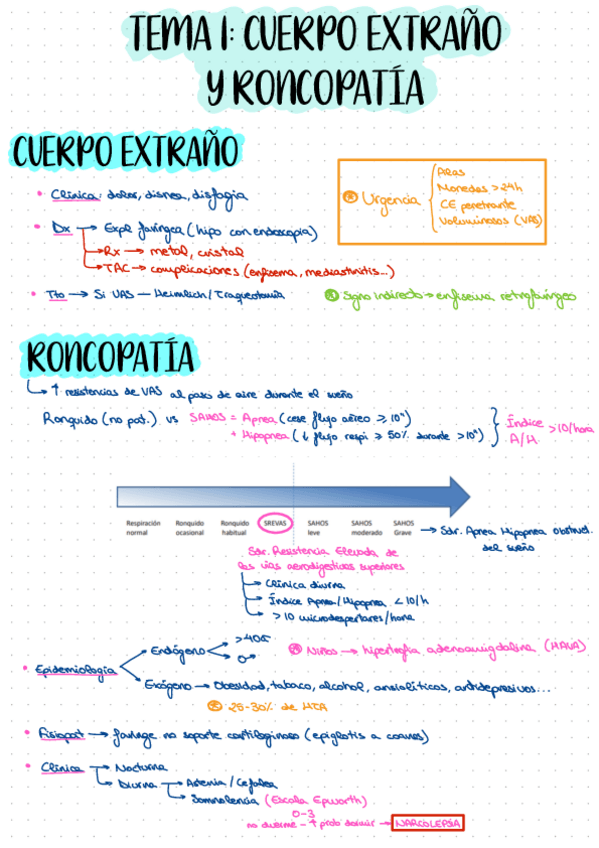 TEMA 1: CUERPO EXTRAÑO
Y RONCOPATÍA
CUERPO EXTRAÑO
• Clínica: dolor, disnea, disfagia
• Dx → Expl faríngea (hipo con endoscopia)
→ Rx → metal, cristal
→ TAC → complicaciones (enfisema, mediastinitis...)
• Tto → Si VAS — Heimlich / Traqueotomía
Urgencia
Pilas
Monedas > 24h
CE penetrante
Voluminosos (VAS)
Signo indirecto → enfisema retrofaríngeo
RONCOPATÍA
→ ↑ resistencias de VAS al paso de aire durante el sueño
Ronquido (no pat.) vs SAHOS = Apnea (cese flujo aéreo ≥ 10")
+ Hipopnea (↓ flujo respi ≥ 50% durante > 10")
Índice A/H > 10/hora
Respiración normal
Ronquido ocasional
Ronquido habitual
SREVAS
SAHOS leve
SAHOS moderado
SAHOS Grave
→ Sdr. Apnea Hipopnea obstruct.
del sueño
Sdr. Resistencia Elevada de
las vías aerodigestivas superiores
→ Clínica diurna
→ Índice Apnea/Hipopnea < 10/h
→ > 10 microdespertares/hora
• Epidemiología
Endógeno
> 40a
♂
Niños → hipertrofia adenoamigdalina (HAVA)
Exógeno → Obesidad, tabaco, alcohol, ansiolíticos, antidepresivos...
25-30% de HTA
• Fisiopat → faringe no soporte cartilaginoso (epiglotis a coanas)
• Clínica → Nocturna
→ Diurna → Astenia / Cefalea
→ Somnolencia (Escala Epworth)
0-3
no duerme - ↑ prob dormir → NARCOLEPSIA